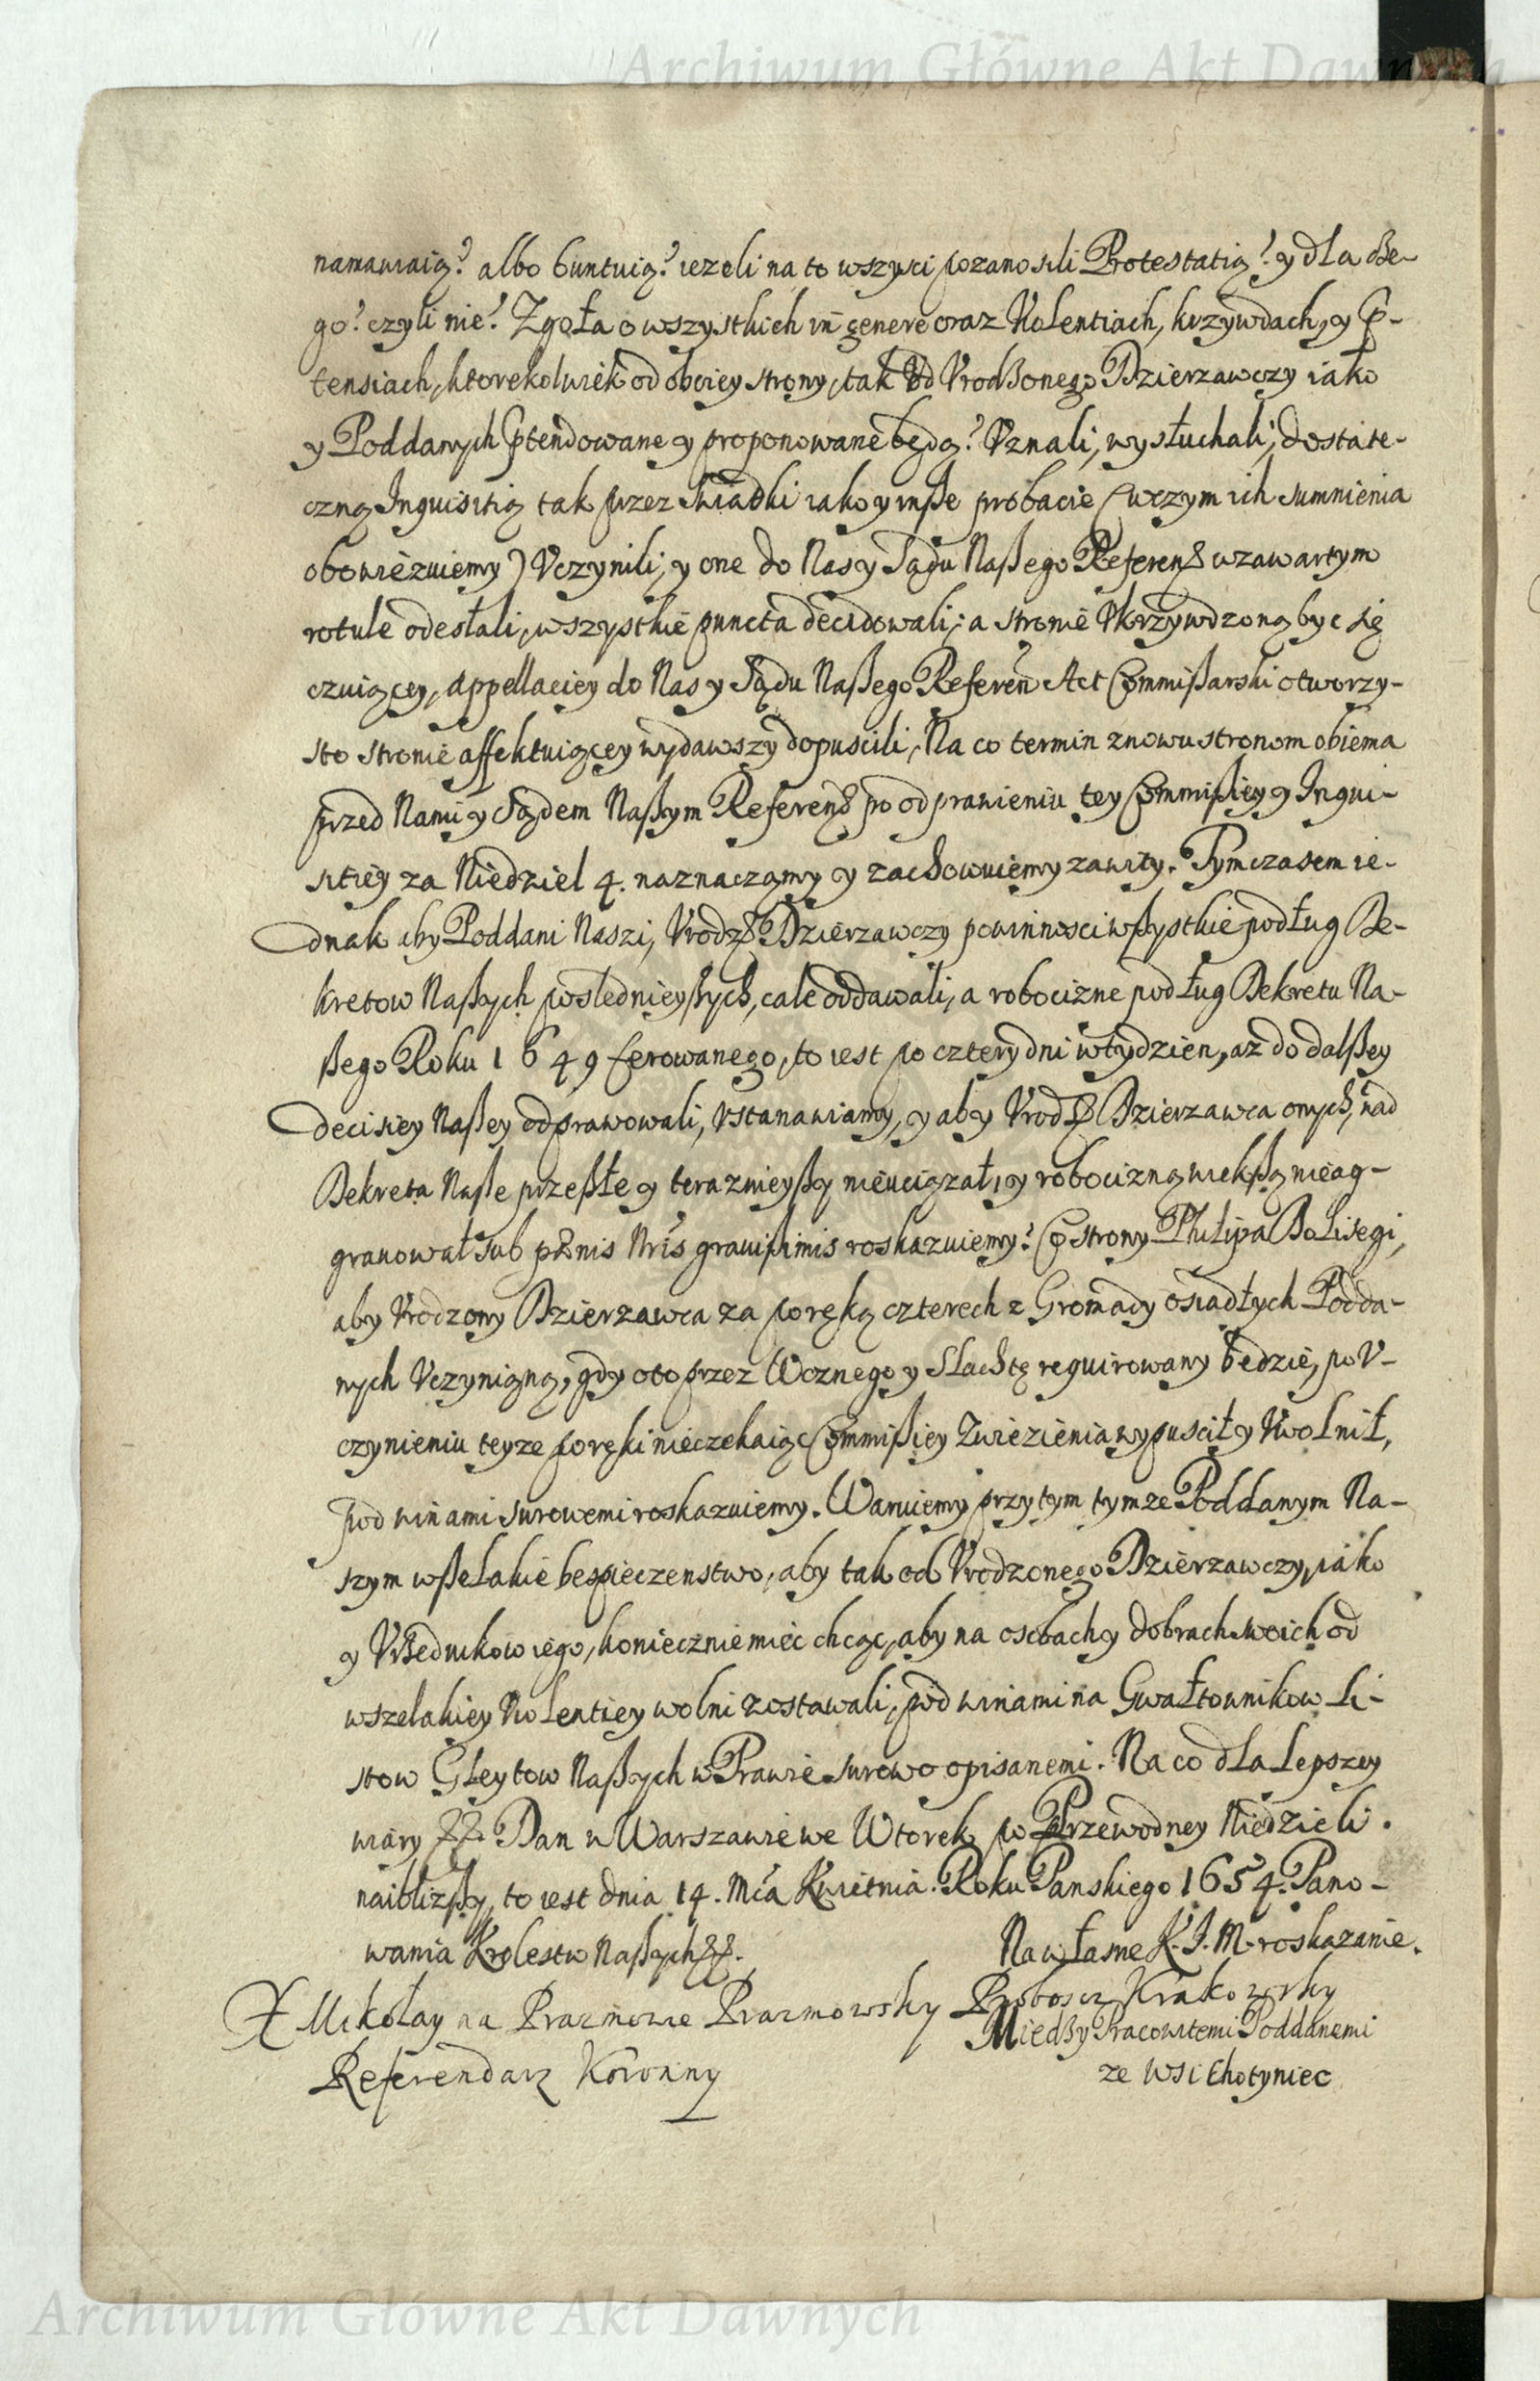 Archiwum Główne Akt Dawnych
namawiaią? albo buntuią? ieżeli na to wszyscy pozanosili Protestatią? y dla cze-
go? czyli nie? Zgoła o wszystkich in genere oraz Violentiach, krzywdach, y p-
tensiach, ktorekolwiek od oboiey strony, tak od Vrodzonego Dzierzawczy iako
y Poddanych ptendowane y proponowane będą? Vznali, wysłuchali, dostate-
czną Inquisitią tak przez swiadki iako y insze probacie (w czym ich sumnienia
obowięzuiemy) Vczynili, y one do Nas y Sądu Naszego Referen w zawartym
rotule odesłali, wszystkie puncta decidowali, a stronie Vkrzywdzoną byc się
czuiącey, appellaciey do Nas y Sądu Naszego Referen Act Commiszarski otworzy-
sto stronie affektuiącey wydawszy dopuscili, Na co termin znowu stronom obiema
przed Nami y Sądem Naszym Referen po odprawieniu tey Commisziey y Inqui-
sitiey za Niedziel 4. naznaczamy y zachowuiemy zawity. Tymczasem ie-
dnak aby Poddani Naszi, Vrodz Dzierzawczy powinnosci wszystkie podług De-
kretow Naszych poslednieyszych, cale oddawali, a robocizne podług Dekretu Na-
szego Roku 1649 ferowanego, to iest po cztery dni w tydzien, az do dalszey
decisiey Naszey odprawowali, Vstanawiamy, y aby Vrodz Dzierzawca onych, nad
Dekreta Nasze przeszłe y teraznieyszy nieuciązał, y robocizną wiekszą nieag-
grauowal sub pænis Nris grauissimis roskazuiemy? Co strony Philipa Bolisegi,
aby Vrodzony Dzierzawca za poręką czterech z Gromady osiadłych Podda-
nych Vczynioną, gdy oto przez Woznego y Slachtę requirowany bedzie, po V-
czynieniu teyze poręki nieczekaiąc Commisziey z wiezienia wypuscił y Vwolnił,
pod winami surowemi roskazuiemy. Waruiemy przy tym tymze Poddanym Na-
szym wszelakie bespieczenstwo, aby tak od Vrodzonego Dzierzawczy, iako
y Vrzednikow iego, koniecznie miec chcąc, aby na osobach y dobrach swoich od
wszelakiey Violentiey wolni zostawali, pod winami na Gwałtownikow Li-
stow Gleytow Naszych w Prawie surowo opisanemi. Na co dla lepszey
wiary Dan w Warszawie we Wtorek po Przewodney Niedzieli
naiblizszy, to iest dnia 14. Mca Kwietnia. Roku Panskiego 1654. Pano-
wania Krolestw Naszych
Na własne K. J. M. roskazanie.
X Mikołay na Prazmowie Prazmowsky Proboscz Krakowsky
Referendarz Koronny
Miedzy Pracowitemi Poddanemi
ze wsi Chotyniec
Archiwum Główne Akt Dawnych